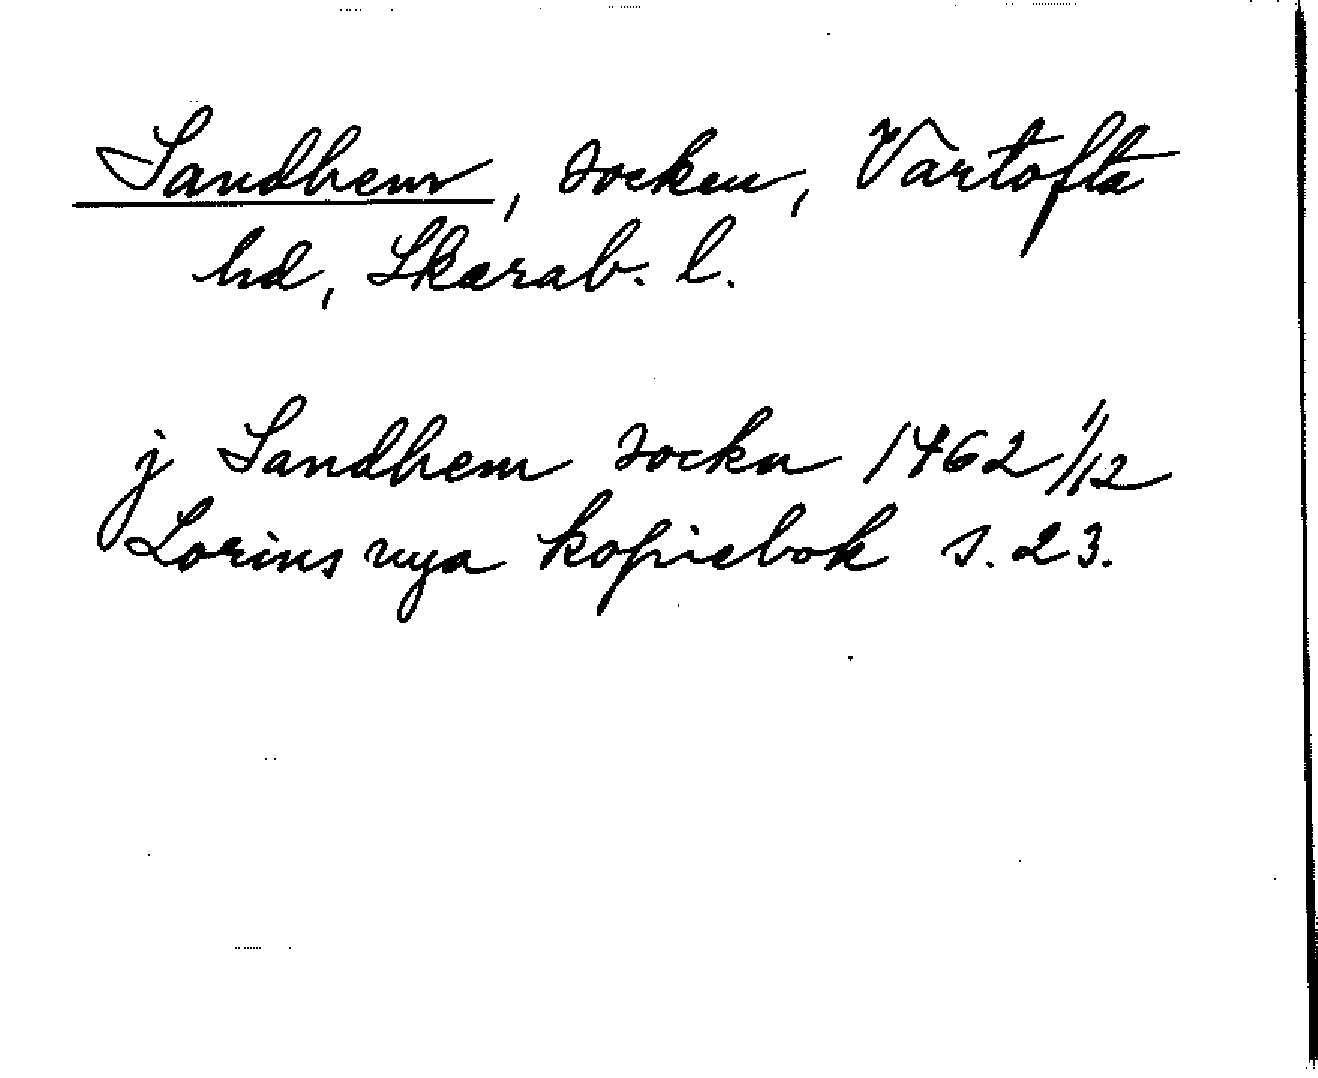 Sandhem, socken, Vartofta
hd, Skarab. l.
j Sandhem sockn 1462 1/12
Lorins nya kopiebok s. 23.